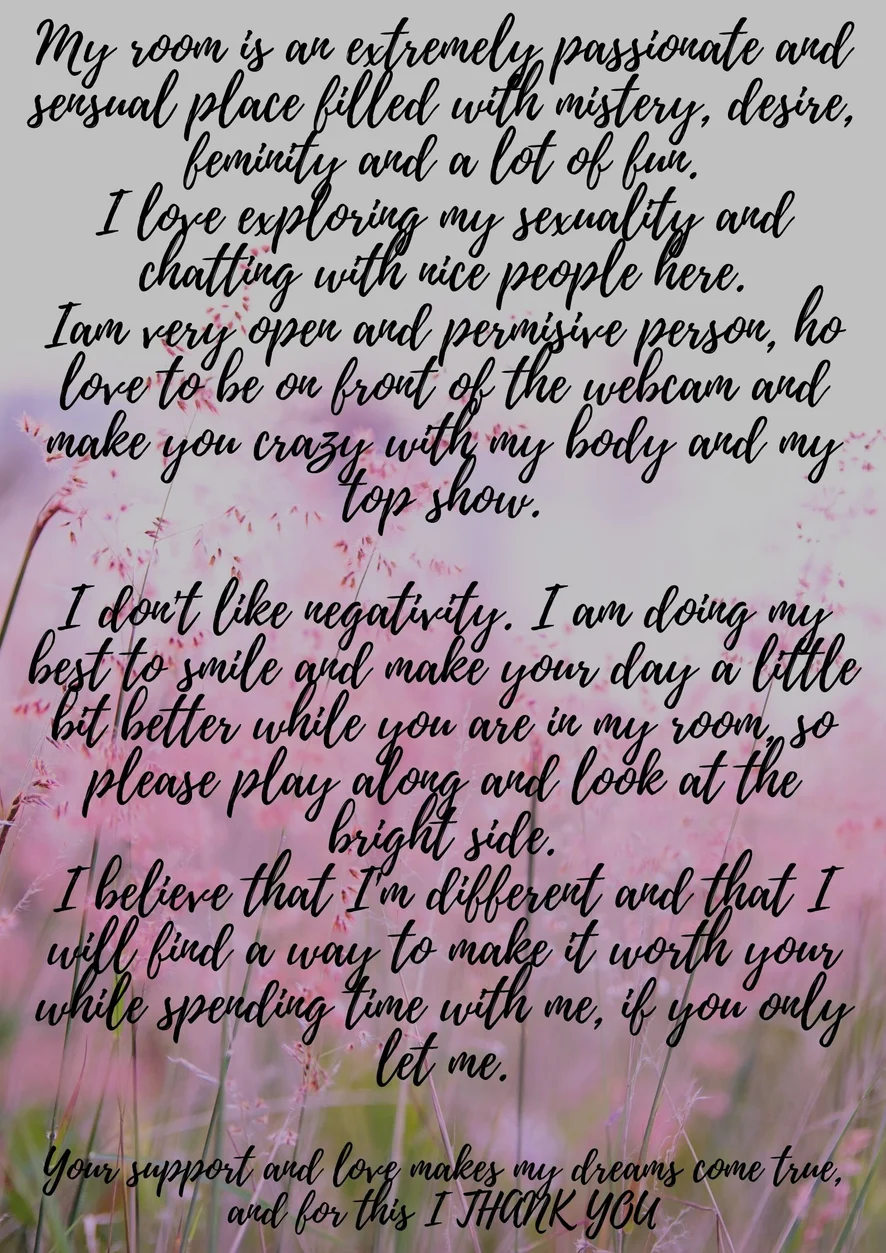 My room is an extremely passionate and
sensual place filled with mistery, desire,
feminity and a lot of fun.
I love exploring my sexuality and
chatting with nice people here.
Iam very open and permisive person, ho
love to be on front of the webcam and
make you crazy with my body and my
top show.
I don't like negativity. I am doing my
best to smile and make your day a little
bit better while you are in my room, so
please play along and look at the
bright side.
I believe that I'm different and that I
will find a way to make it worth your
while spending time with me, if you only
let me.
Your support and love makes my dreams come true,
and for this I THANK YOU